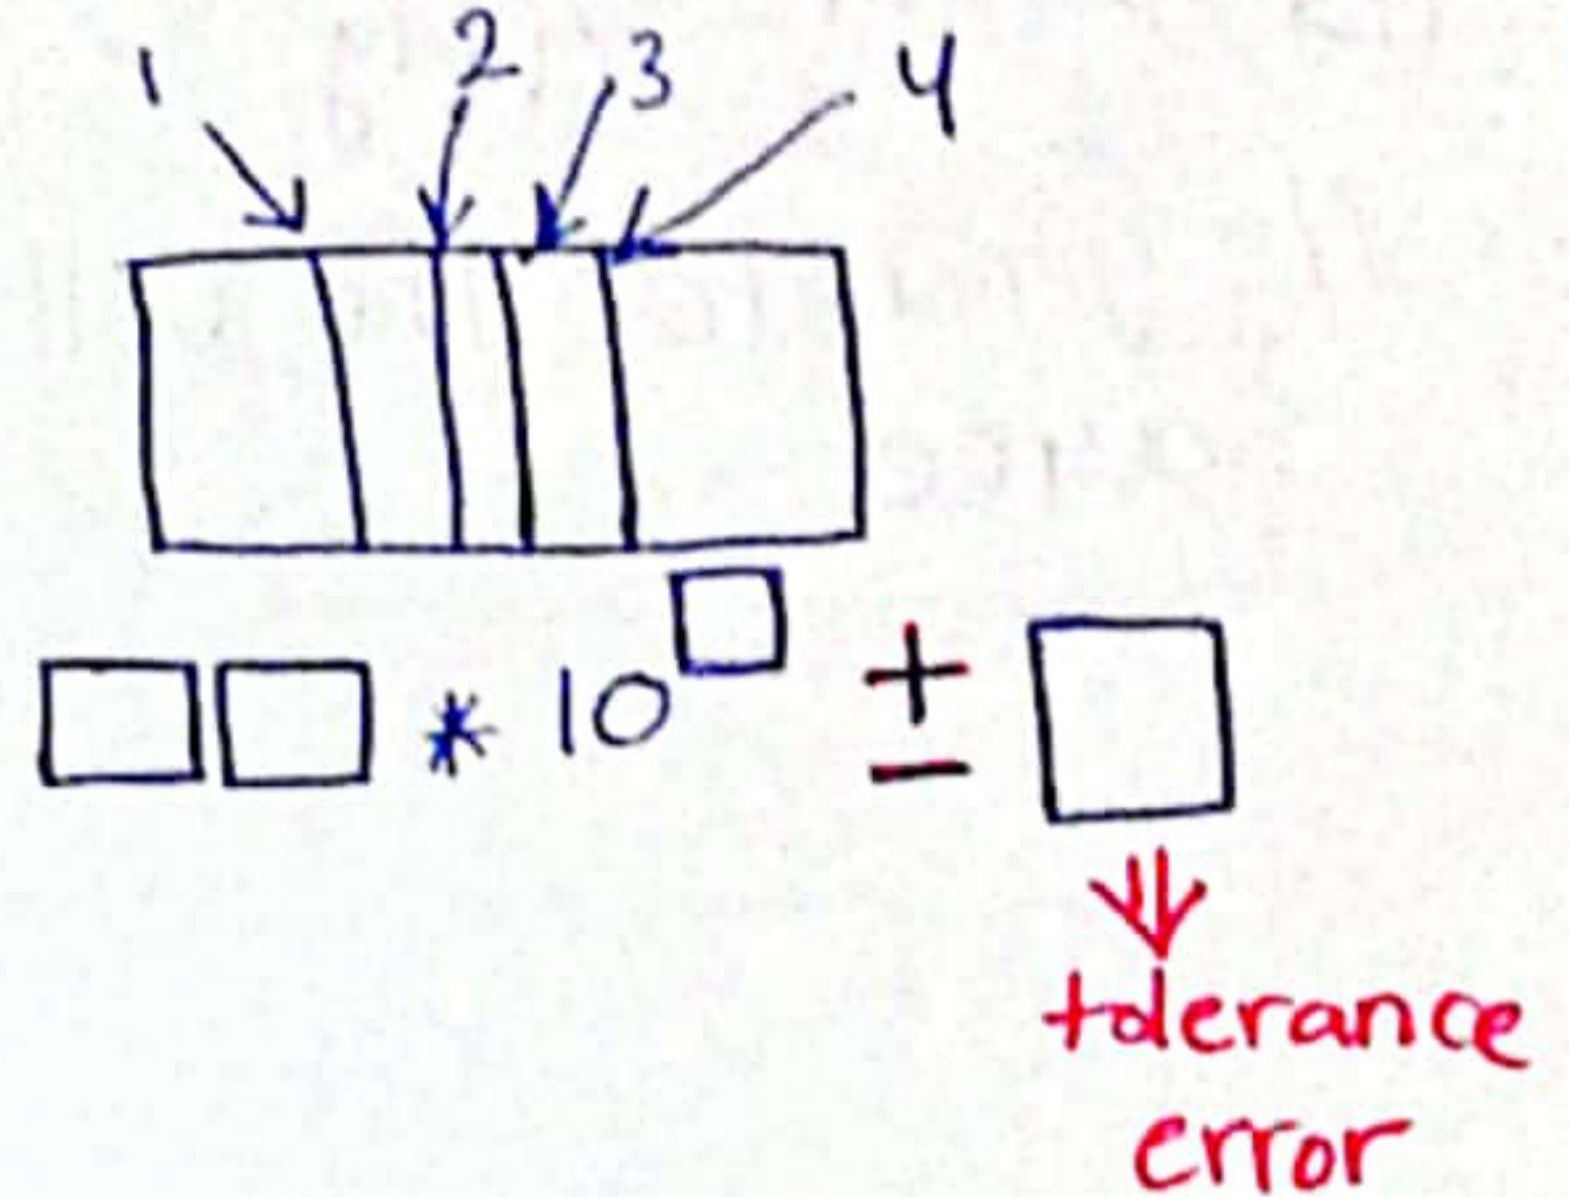 1 2 3 4
* 10 ±
tolerance
error